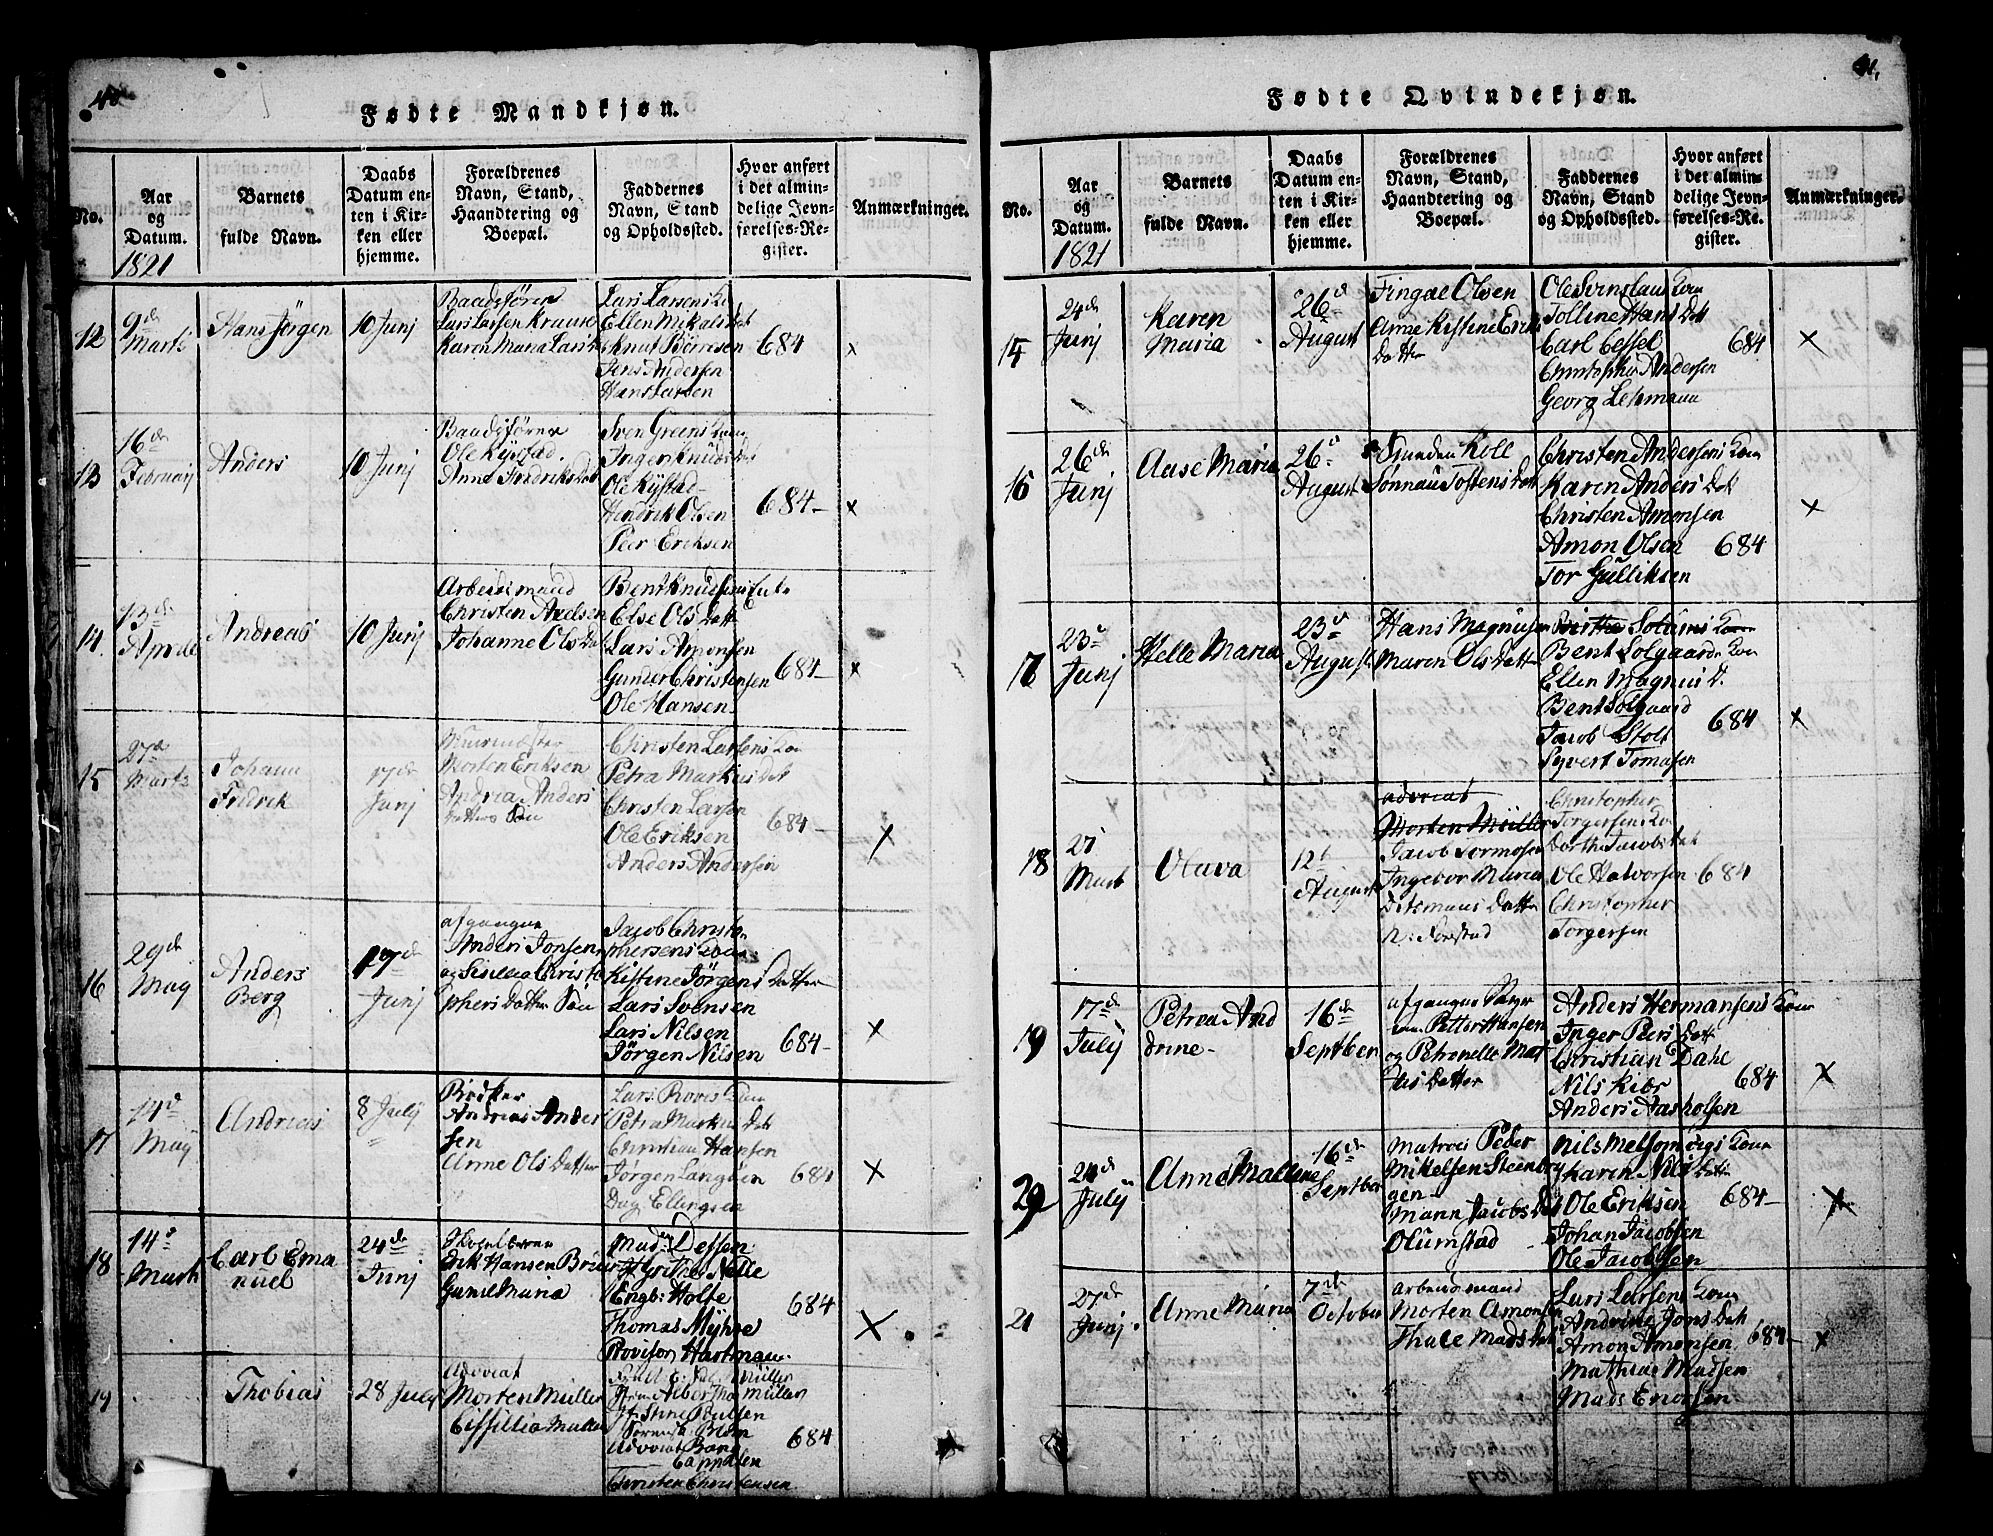 Fødte Mandkjøn.
No.
Aar
og
Datum.
1821
Barnets
fulde Navn.
Daabs
Datum en-
ten i Kir-
ken eller
hjemme.
Forældrenes
Navn, Stand,
Haandtering og
Boepæl.
Faddernes
Navn, Stand
og Opholdssted.
Hvor anført
i det almin-
delige Jevn-
førelses-Re-
gister.
Anmærkninger.
12
9de
Marts
Hans Jørgen
10 Junj
Baadsfører
Lars Larsen Krause
Karen Maria Lars
Lars Larsens
Ellen Mikals Dat
Knut Børresen
Jens Andersen
Hans Larsen
684
x
13
16de
Februarj
Anders
10 Junj
Baadsfører
Ole Kystad
Anne Fredriks Dat
Sven Greens Kone
Inger Knuds Dat
Ole Kystad
Hendrik Olsen
Peer Eriksen
684
x
14
13de
Andreas
10 Junj
Arbeidsmand
Christen Axelsen
Johanne Ols Dat
Bent Knudsens Enke
Else Ols Datt
Lars Amonsen
Gunder Christensen
Ole Hansen
684
x
15
27de
Marts
Johann
Fridrik
17de
Junj
Muurmester
Morten Eriksen
Andrea Anders
Datters Søn
Christen Larsens Kone
Petra Markus Dat
Christen Larsen
Ole Eriksen
Anders Andersen
684
x
16
29de
Maj
Anders
Berg
17de
Junj
afgangne
Anders Jonsen
og Sisilia Christo
phers Datter Søn
Jacob Christo
phersens Kone
Kistine Jørgens Datter
Lars Svensen
Lars Nilsen
Jørgen Nilsen
684
x
17
14de
Maj
Andreas
8 Julij
Bødker
Andreas Ander
sen
Anne Ols Datter
Lars Roves Kone
Petra Markus Dat
Christian Hansen
Jørgen Langøen
Dag Ellingsen
684
x
18
14de
Marts
Carl Ema
nuel
24de
Junj
Erik Hansen
Gunil Maria
Mad. Dessen
Engb: Holfe
Thomas Myhre
Provisor Hartman
684
x
19
Thobias
28 Julj
Advocat
Morten Müller
Cissillia Müller
Müller
Müller
Stine Poulsen
Sørensk. Blom
Advocat Bang
Cappelen
Christen Christensen
684
41.
Fødte Qvindekjøn.
No.
Aar
og
Datum.
1821
Barnets
fulde Navn.
Daabs
Datum en-
ten i Kir-
ken eller
hjemme.
Forældrenes
Navn, Stand,
Haandtering og
Boepæl.
Faddernes
Navn, Stand
og Opholdssted.
Hvor anført
i det almin-
delige Jevn-
førelses-Re-
gister.
Anmærkninger.
15
24de
Junj
Karen
Maria
26de
August
Fingal Olsen
Anne Kistine Eriks
Datter
Ole Svinslaus Kone
Tolline Hans Datt
Carl Cessel
Christopher Andersen
Georg Lehmann
684
x
16
26de
Junj
Aase Maria
26de
August
Gunden Koll
Sønnau Tostens Datt
Christen Andersens Kone
Karen Anders Dat
Christen Amonsen
Amon Olsen
Tor Gulliksen
684
x
17
23de
Junj
Helle Maria
23de
August
Hans Magnusen
Maren Ols Datter
Bent Solgaards Kone
Ellen Magnus D.
Bent Solgaard
Jacob Stolt
Syvert Tomasen
684
x
18
27
Mart
Olava
12t
August
advocat
Morten Müller
Jacob Tormosen
Ingebor Maria
Ditsmans Datter
Christopher
Torgersens Kone
Dorthe Jacobs Dat
Ole Halvorsen
Christopher
Torgersen
684
19
17de
Julij
Petrea And
drine
16de
Septber
afgangne
Petter Hansen
og Petronelle Mat
tias Datter
Anders Hermansens Kone
Inger Peers Datt
Christian Dahl
Nils Kiær
Anders Aasholsen
684
x
20
24de
Julij
Anne Mallene
16de
Septber
Matros Peder
Mikelsen Steenbry
gen
Mann Jacobs Dat
Olumstad
Nils Melsomvigs Kone
Karen Nils Dat
Ole Eriksen
Johan Jacobsen
Ole Jacobsen
684
x
21
27de
Junj
Anne Maria
7de
October
arbeidsmand
Morten Amonsen
Thale Mads Dat
Lars Larsens Kone
Andrine Jons Dat
Amon Amonsen
Mathias Madsen
Mads Enersen
684
x